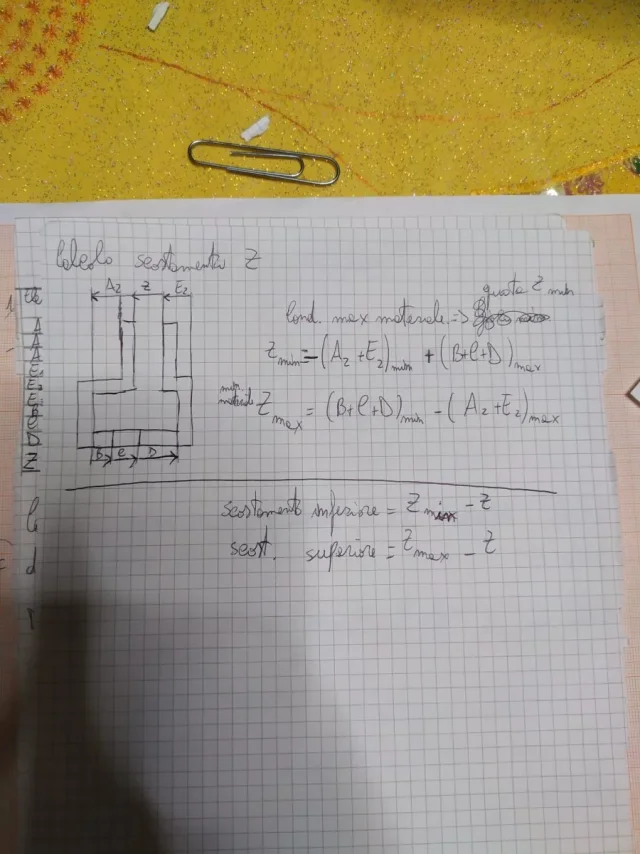 Calcolo scostamenti Z
A2 Z E2
Cond. max materiale => quota Z min
Zmin = -(A2+E2)min + (B+C+D)max
min materiale Zmax = (B+C+D)min - (A2+E2)max
B C D
scostamento inferiore = Zmin - Z
scost. superiore = Zmax - Z
A
A
A
E
E
E
B
C
D
Z